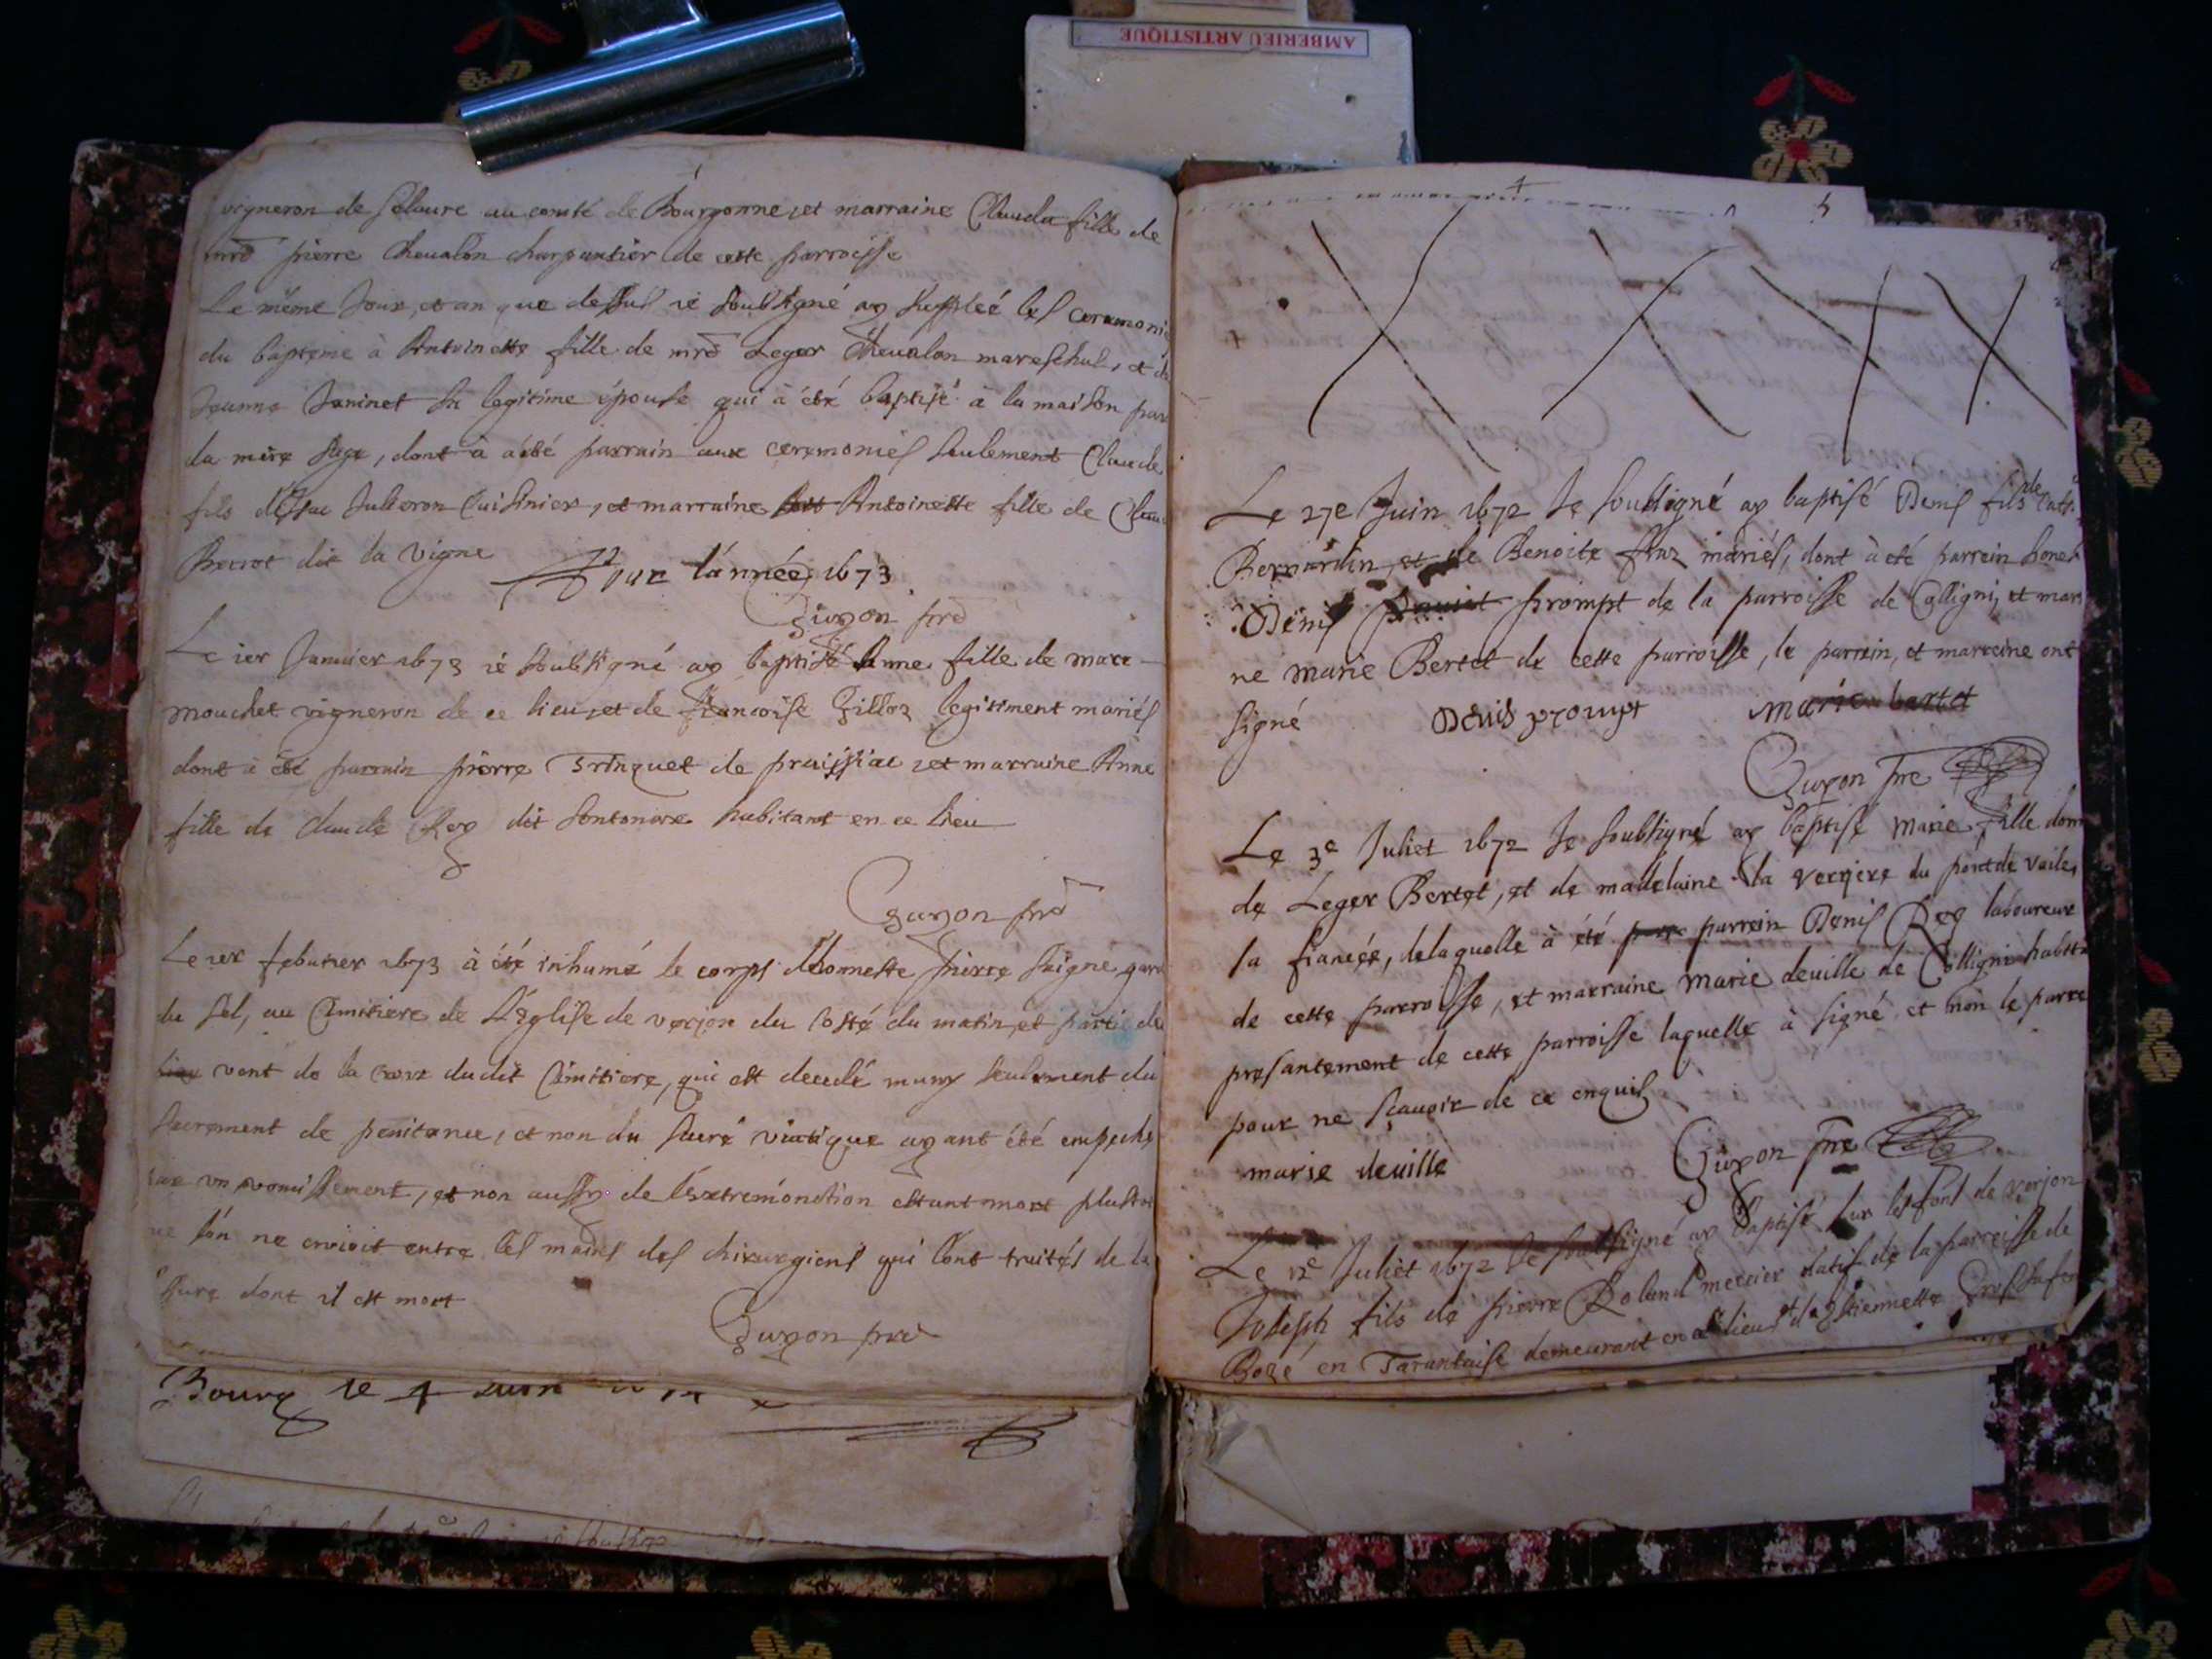 AMBERIEU ARTISTIQUE
vigneron de Selaure au comté de Bourgonne, et marraine Clauda fille de
mre pierre Cheualon charpantier de cette parroisse
Le même Jour, et an que dessus ié soubsigné ay suppleé les ceremonie
du bapteme à Antoinette fille de mre Leger Cheualon mareschal, et de
Jeanne Janinet sa legitime épouse qui à été baptisé à la maison par
la mere sage, dont à a été parrain aux ceremonies seulement Claude
fils d'Isac Julieron Cuisinier, et marraine Antoinette fille de Clau
dit la vigne
Pour l'année 1673
Guyon pre
Le ier Januier 1673 ié soubsigné ay baptisé Anne fille de marc
mouchet vigneron de ce lieu, et de francoise Gilloz legitiment mariés
dont à été parrain pierre Trinquet de praissiac, et marraine Anne
fille de claude Rey dit habitant en ce lieu
Guyon pre
Le ier februrier 1673 à été inhumé le corps d'honneste pierre gard
du sel, au Cimitiere de L'Eglise de verjon du costé du matin, et partie du
vent de la croix dudit Cimitiere, qui est decedé muny seulement du
sacrement de penitance, et non du sacré viatique ayant été empeché
par un vomissement, et non aussy de l'extremonction estant mort plustot
que l'on ne croioit entre les mains des chirurgiens qui l'ont traités de la
dont il est mort
Guyon pre
Bourg le 4
5
Le 27e Juin 1672 Je soubsigné ay baptisé Denis fils de
Bernardin, et de Benoite mariés, dont à été parrein hones
Denis prompt de la parroisse de Colligni, et mar
ne marie Bertet de cette parroisse, le parrein, et marreine ont
signé Denis prompt marie bertet
Guyon pre
Le 3e Juliet 1672 Je soubsigné ay baptisé marie fille
de Leger Bertet, et de madelaine la verriere du pont de vaile
sa fiancée, de laquelle à été parrein Denis Rey laboureur
de cette parroisse, et marraine marie deuille de Colligni habita
presantement de cette parroisse laquelle à signé et non le parre
pour ne sçauoir de ce enquis
marie deuille Guyon pre
Le 12e Juliet 1672 Je soubsigné ay baptisé sur les fons de verjon
Joseph fils de pierre Roland mercier natif de la parroisse de
Bozé en Tarantaise demeurant en ce lieu et d'Estiennette